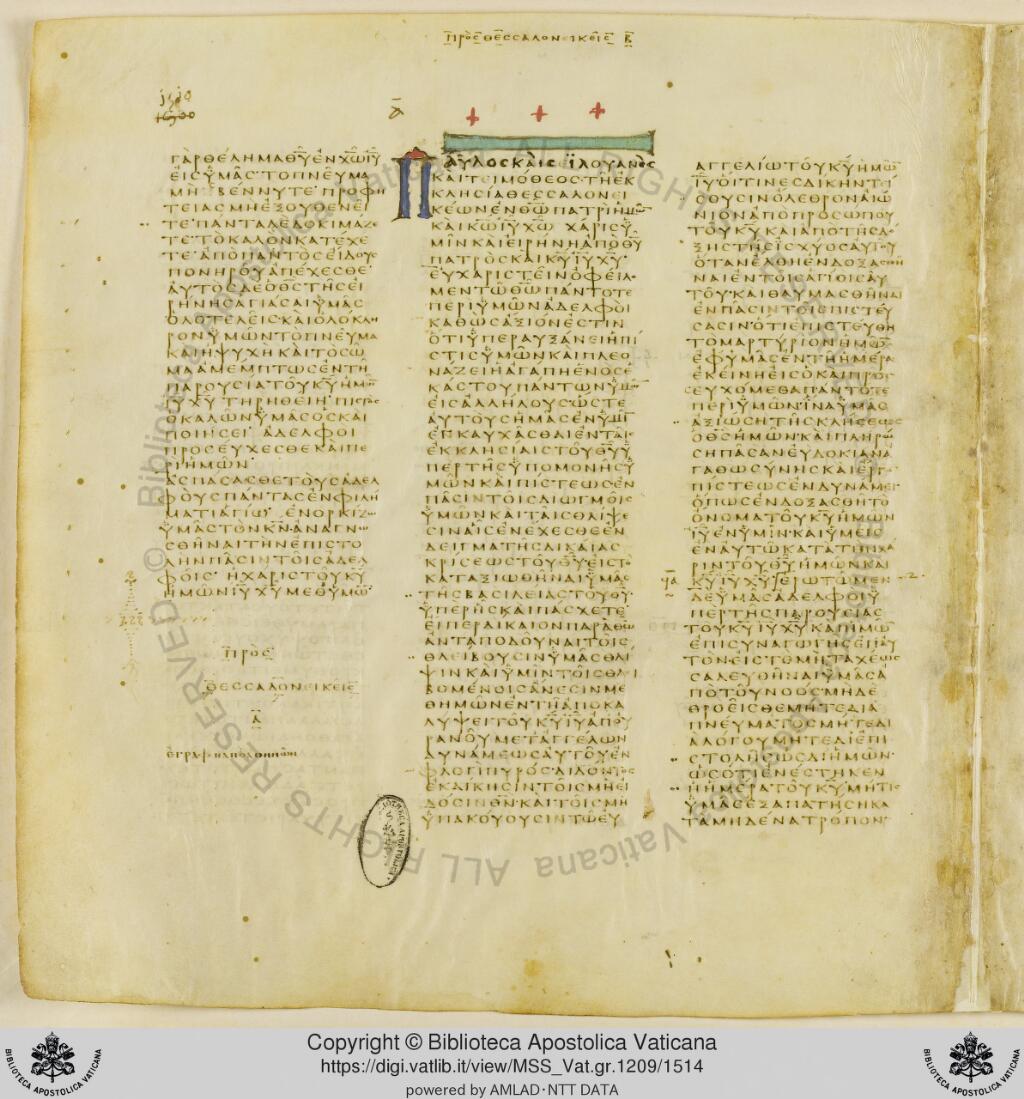 ΠΡΟϹΘΕϹϹΑΛΟΝΕΙΚΕΙϹ Β̅
Α̅
ΓΑΡΘΕΛΗΜΑΘ̅Υ̅ΕΝΧ̅Ω̅Ι̅Υ̅
ΕΙϹΥΜΑϹΤΟΠΝΕΥΜΑ
ΜΗ ΒΕΝΝΥΤΕ ΠΡΟΦΗ
ΤΕΙΑϹΜΗΕΞΟΥΘΕΝΕΙ
ΤΕ ΠΑΝΤΑΔΕΔΟΚΙΜΑΖΕ
ΤΕ ΤΟΚΑΛΟΝΚΑΤΕΧΕ
ΤΕ ΑΠΟΠΑΝΤΟϹΕΙΔΟΥϹ
ΠΟΝΗΡΟΥΑΠΕΧΕϹΘΕ
ΑΥΤΟϹΔΕΟΘ̅Ϲ̅ΤΗϹΕΙ
ΡΗΝΗϹΑΓΙΑϹΑΙΥΜΑϹ
ΟΛΟΤΕΛΕΙϹΚΑΙΟΛΟΚΛΗ
ΡΟΝΥΜΩΝΤΟΠΝΕΥΜΑ
ΚΑΙΗΨΥΧΗΚΑΙΤΟϹΩ
ΜΑΑΜΕΜΠΤΩϹΕΝΤΗ
ΠΑΡΟΥϹΙΑΤΟΥΚ̅Υ̅ΗΜΩ̅
Ι̅Υ̅Χ̅Υ̅ΤΗΡΗΘΕΙΗ ΠΙϹΤΟϹ
ΟΚΑΛΩΝΥΜΑϹΟϹΚΑΙ
ΠΟΙΗϹΕΙ ΑΔΕΛΦΟΙ
ΠΡΟϹΕΥΧΕϹΘΕΚΑΙΠΕ
ΡΙΗΜΩΝ
ΑϹΠΑϹΑϹΘΕΤΟΥϹΑΔΕΛ
ΦΟΥϹΠΑΝΤΑϹΕΝΦΙΛΗ
ΜΑΤΙΑΓΙΩ ΕΝΟΡΚΙΖΩ
ΥΜΑϹΤΟΝΚ̅Ν̅ΑΝΑΓΝΩ
ϹΘΗΝΑΙΤΗΝΕΠΙϹΤΟ
ΛΗΝΠΑϹΙΝΤΟΙϹΑΔΕΛ
ΦΟΙϹ ΗΧΑΡΙϹΤΟΥΚ̅Υ̅
ΗΜΩΝΙ̅Υ̅Χ̅Υ̅ΜΕΘΥΜΩ̅
ΠΡΟϹ
ΘΕϹϹΑΛΟΝΕΙΚΕΙϹ
Α̅
ΕΓΡΑΦΗΑΠΟΑΘΗΝΩΝ
ΠΑΥΛΟϹΚΑΙϹΙΛΟΥΑΝΟϹ
ΚΑΙΤΕΙΜΟΘΕΟϹΤΗΕΚ
ΚΛΗϹΙΑΘΕϹϹΑΛΟΝΕΙ
ΚΕΩΝΕΝΘ̅Ω̅ΠΑΤΡΙΗΜΩ̅
ΚΑΙΚ̅Ω̅Ι̅Υ̅Χ̅Ω̅ ΧΑΡΙϹΥ
ΜΙΝΚΑΙΕΙΡΗΝΗΑΠΟΘ̅Υ̅
ΠΑΤΡΟϹΚΑΙΚ̅Υ̅Ι̅Υ̅Χ̅Υ̅
ΕΥΧΑΡΙϹΤΕΙΝΟΦΕΙΛΟ
ΜΕΝΤΩΘ̅Ω̅ΠΑΝΤΟΤΕ
ΠΕΡΙΥΜΩΝΑΔΕΛΦΟΙ
ΚΑΘΩϹΑΞΙΟΝΕϹΤΙΝ
ΟΤΙΥΠΕΡΑΥΞΑΝΕΙΗΠΙ
ϹΤΙϹΥΜΩΝΚΑΙΠΛΕΟ
ΝΑΖΕΙΗΑΓΑΠΗΕΝΟϹΕ
ΚΑϹΤΟΥΠΑΝΤΩΝΥΜΩ̅
ΕΙϹΑΛΛΗΛΟΥϹΩϹΤΕ
ΑΥΤΟΥϹΗΜΑϹΕΝΥΜΙ̅
ΕΝΚΑΥΧΑϹΘΑΙΕΝΤΑΙϹ
ΕΚΚΛΗϹΙΑΙϹΤΟΥΘ̅Υ̅Υ
ΠΕΡΤΗϹΥΠΟΜΟΝΗϹΥ
ΜΩΝΚΑΙΠΙϹΤΕΩϹΕΝ
ΠΑϹΙΝΤΟΙϹΔΙΩΓΜΟΙϹ
ΥΜΩΝΚΑΙΤΑΙϹΘΛΙΨΕ
ϹΙΝΑΙϹΕΝΕΧΕϹΘΕΕΝ
ΔΕΙΓΜΑΤΗϹΔΙΚΑΙΑϹ
ΚΡΙϹΕΩϹΤΟΥΘ̅Υ̅ΕΙϹΤΟ
ΚΑΤΑΞΙΩΘΗΝΑΙΥΜΑϹ
ΤΗϹΒΑϹΙΛΕΙΑϹΤΟΥΘ̅Υ̅
ΥΠΕΡΗϹΚΑΙΠΑϹΧΕΤΕ
ΕΙΠΕΡΔΙΚΑΙΟΝΠΑΡΑΘ̅Ω̅
ΑΝΤΑΠΟΔΟΥΝΑΙΤΟΙϹ
ΘΛΕΙΒΟΥϹΙΝΥΜΑϹΘΛΙ
ΨΙΝΚΑΙΥΜΙΝΤΟΙϹΘΛΙ
ΒΟΜΕΝΟΙϹΑΝΕϹΙΝΜΕ
ΘΗΜΩΝΕΝΤΗΑΠΟΚΑ
ΛΥΨΕΙΤΟΥΚ̅Υ̅Ι̅Υ̅ΑΠΟΥ
ΡΑΝΟΥΜΕΤΑΓΓΕΛΩΝ
ΔΥΝΑΜΕΩϹΑΥΤΟΥΕΝ
ΦΛΟΓΙΠΥΡΟϹΔΙΔΟΝΤΟϹ
ΕΚΔΙΚΗϹΙΝΤΟΙϹΜΗΕΙ
ΔΟϹΙΝΘ̅Ν̅ΚΑΙΤΟΙϹΜΗ
ΥΠΑΚΟΥΟΥϹΙΝΤΩΕΥ
ΑΓΓΕΛΙΩΤΟΥΚ̅Υ̅ΗΜΩ̅
Ι̅Υ̅ΟΙΤΙΝΕϹΔΙΚΗΝΤΕΙ
ϹΟΥϹΙΝΟΛΕΘΡΟΝΑΙΩ
ΝΙΟΝΑΠΟΠΡΟϹΩΠΟΥ
ΤΟΥΚ̅Υ̅ΚΑΙΑΠΟΤΗϹΔΟ
ΞΗϹΤΗϹΙϹΧΥΟϹΑΥΤΟΥ
ΟΤΑΝΕΛΘΗΕΝΔΟΞΑϹΘΗ
ΝΑΙΕΝΤΟΙϹΑΓΙΟΙϹΑΥ
ΤΟΥΚΑΙΘΑΥΜΑϹΘΗΝΑΙ
ΕΝΠΑϹΙΝΤΟΙϹΠΙϹΤΕΥ
ϹΑϹΙΝΟΤΙΕΠΙϹΤΕΥΘΗ
ΤΟΜΑΡΤΥΡΙΟΝΗΜΩ̅
ΕΦΥΜΑϹΕΝΤΗΗΜΕΡΑ
ΕΚΕΙΝΗΕΙϹΟΚΑΙΠΡΟϹ
ΕΥΧΟΜΕΘΑΠΑΝΤΟΤΕ
ΠΕΡΙΥΜΩΝΙΝΑΥΜΑϹ
ΑΞΙΩϹΗΤΗϹΚΛΗϹΕΩϹ
ΟΘ̅Ϲ̅ΗΜΩΝΚΑΙΠΛΗΡΩ
ϹΗΠΑϹΑΝΕΥΔΟΚΙΑΝΑ
ΓΑΘΩϹΥΝΗϹΚΑΙΕΡΓΟ̅
ΠΙϹΤΕΩϹΕΝΔΥΝΑΜΕΙ
ΟΠΩϹΕΝΔΟΞΑϹΘΗΤΟ
ΟΝΟΜΑΤΟΥΚ̅Υ̅ΗΜΩΝ
Ι̅Υ̅ΕΝΥΜΙΝΚΑΙΥΜΕΙϹ
ΕΝΑΥΤΩΚΑΤΑΤΗΝΧΑ
ΡΙΝΤΟΥΘ̅Υ̅ΗΜΩΝΚΑΙ
Κ̅Υ̅Ι̅Υ̅Χ̅Υ̅ ΕΡΩΤΩΜΕΝ
ΔΕΥΜΑϹΑΔΕΛΦΟΙΥ
ΠΕΡΤΗϹΠΑΡΟΥϹΙΑϹ
ΤΟΥΚ̅Υ̅Ι̅Υ̅Χ̅Υ̅ΚΑΙΗΜΩ̅
ΕΠΙϹΥΝΑΓΩΓΗϹΕΠΑΥ
ΤΟΝΕΙϹΤΟΜΗΤΑΧΕΩϹ
ϹΑΛΕΥΘΗΝΑΙΥΜΑϹΑ
ΠΟΤΟΥΝΟΟϹΜΗΔΕ
ΘΡΟΕΙϹΘΕΜΗΤΕΔΙΑ
ΠΝΕΥΜΑΤΟϹΜΗΤΕΔΙ
ΑΛΟΓΟΥΜΗΤΕΔΙΕΠΙ
ϹΤΟΛΗϹΩϹΔΙΗΜΩΝ
ΩϹΟΤΙΕΝΕϹΤΗΚΕΝ
ΗΗΜΕΡΑΤΟΥΚ̅Υ̅ΜΗΤΙϹ
ΥΜΑϹΕΞΑΠΑΤΗϹΗΚΑ
ΤΑΜΗΔΕΝΑΤΡΟΠΟΝ
Copyright © Biblioteca Apostolica Vaticana
https://digi.vatlib.it/view/MSS_Vat.gr.1209/1514
powered by AMLAD·NTT DATA